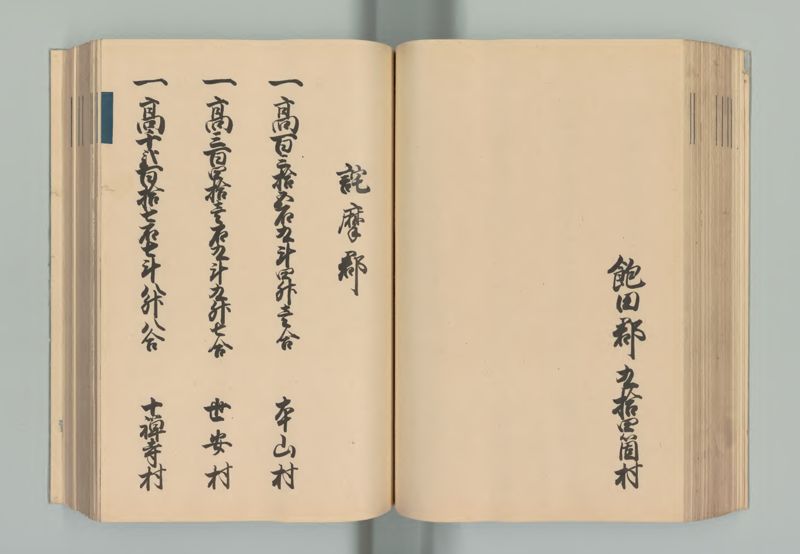 飽田郡五拾四箇村
詫摩郡
一高百三拾五石五斗四升壱合 本山村
一高三百四拾壱石五斗五升七合 世安村
一高千弐百拾七石七斗八升八合 十禅寺村